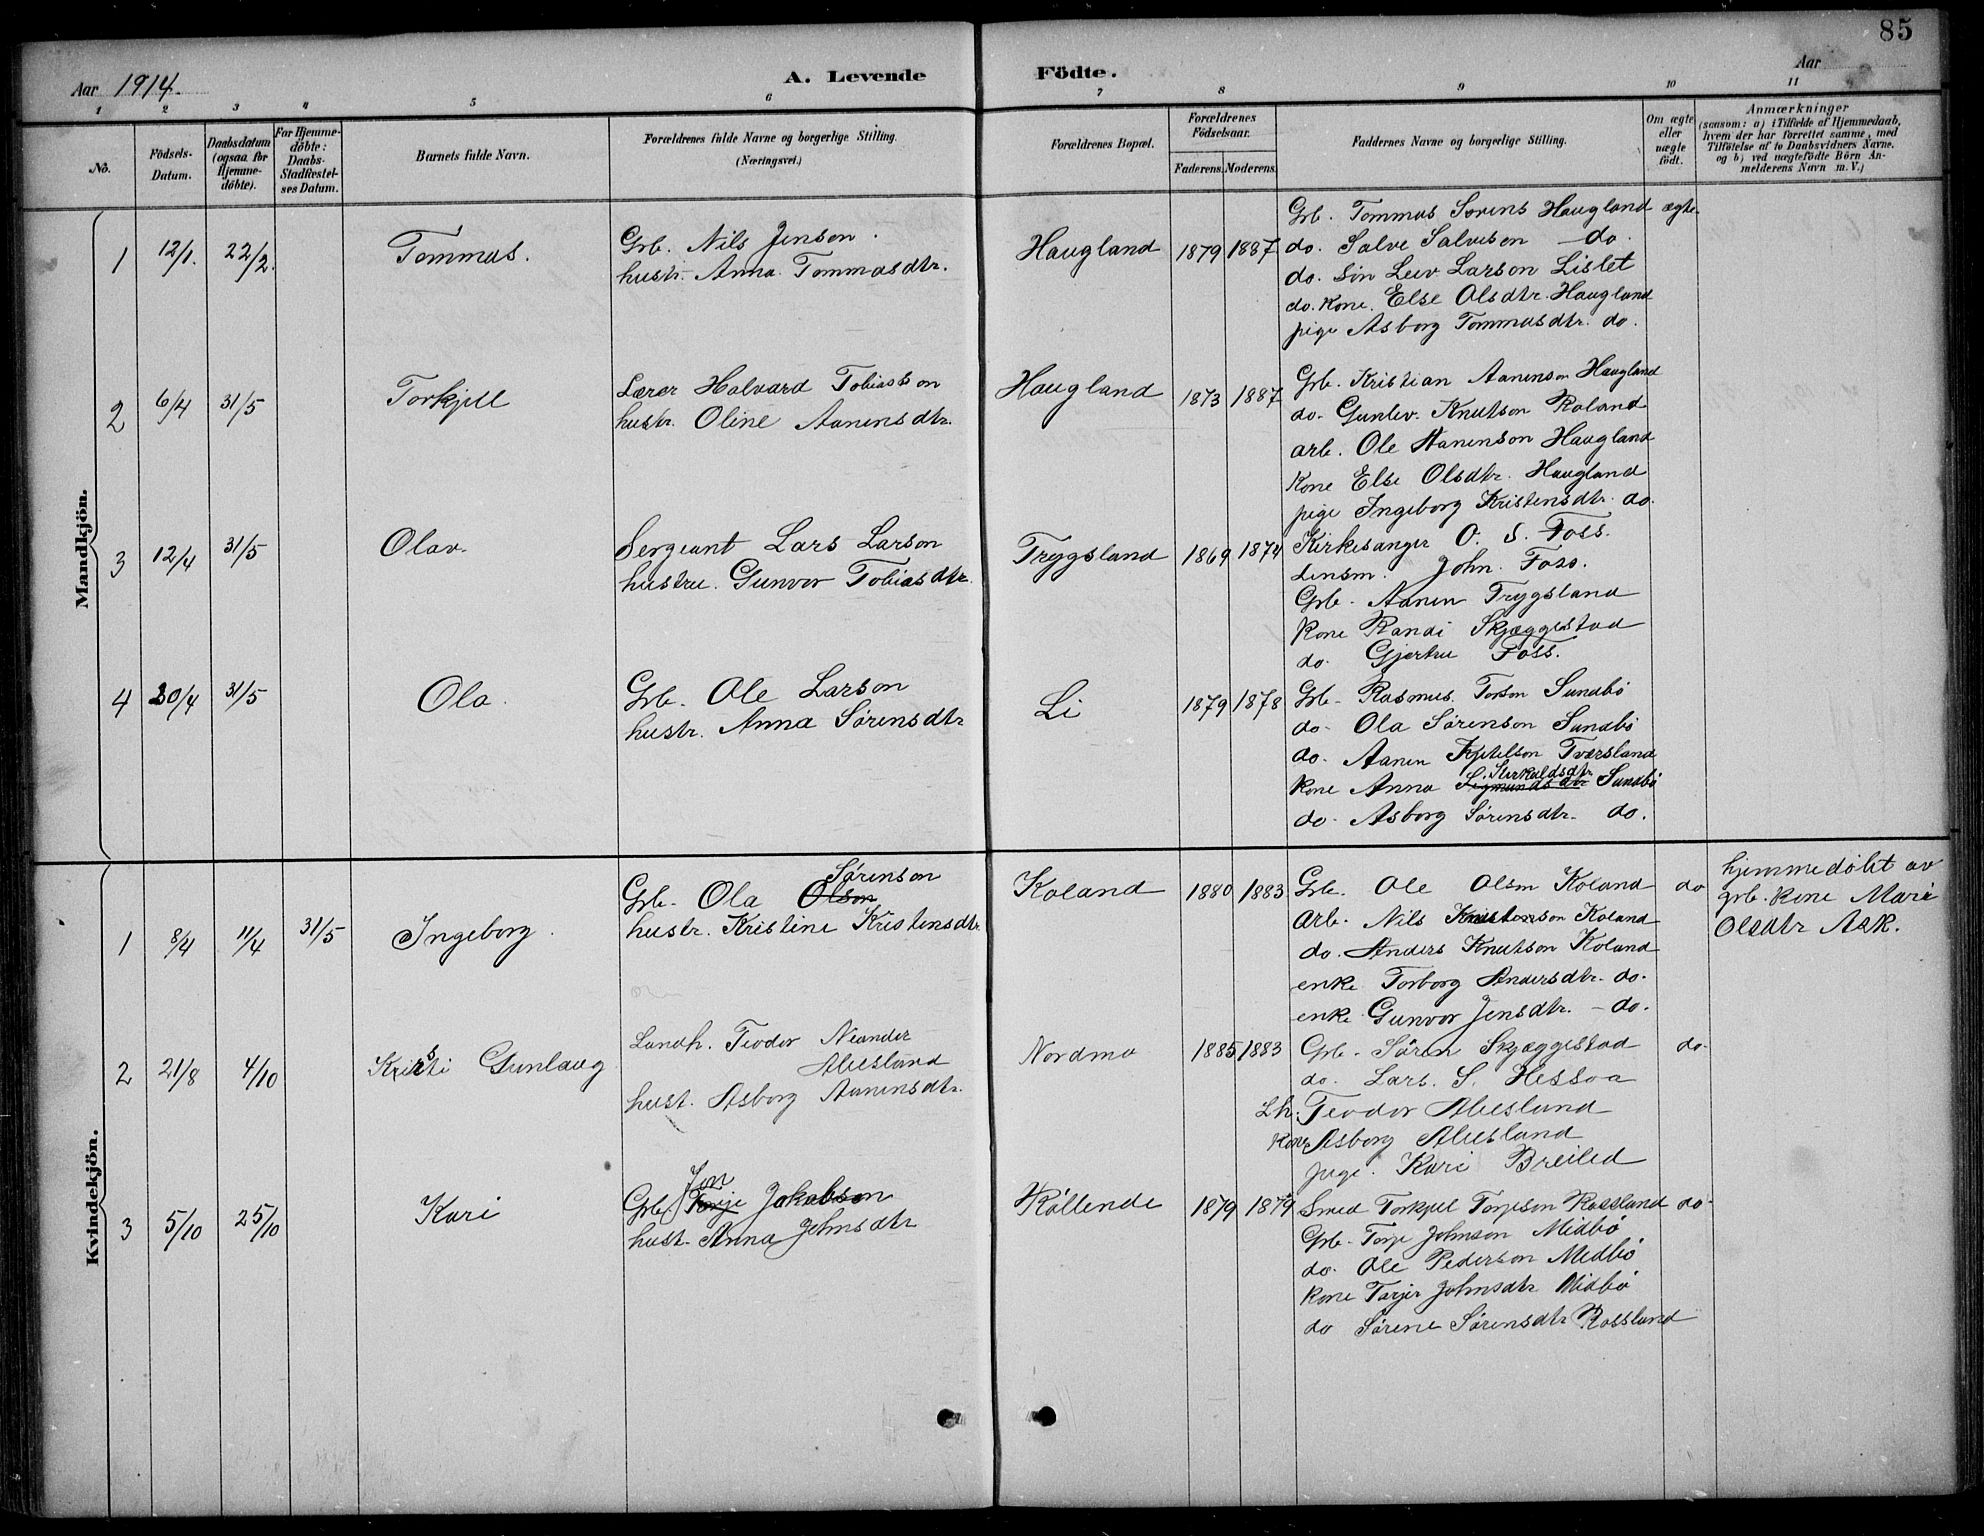 85
Aar 1914.
A. Levende Födte.
Aar
1 2 3 4 5 6 7 8 9 10 11
No.
Födsels-Datum.
Daabsdatum (ogsaa for Hjemme-døbte).
For Hjemme-døbte: Daabs-Stadfæstel-ses Datum.
Barnets fulde Navn.
Forældrenes fulde Navne og borgerlige Stilling. (Næringsvei.)
Forældrenes Bopæl.
Forældrenes Födselsaar.
Faderens. Moderens.
Faddernes Navne og borgerlige Stilling.
Om ægte eller uægte født.
Anmærkninger
(saasom: a) i Tilfælde af Hjemmedaab,
hvem der har forrettet samme, med
Tilföielse af to Daabsvidners Navne.
og b) ved uægtefödte Börn An-
melderens Navn m.V.)
Mandkjön.
1 12/1. 22/2. Tommas.
Grb. Nils Jenson.
hustr. Anna Tommasdtr.
Haugland 1879 1887
Grb. Tommas Sørens Haugland ægte.
do. Salve Salveson do.
do. søn Leiv Larson Lislet
do. kone. Else Olsdtr. Haugland
pige Asborg Tommasdtr. do.
2 6/4 31/5 Torkjell
Lærer Halvard Tobiasson
hustr. Oline Aanensdtr.
Haugland 1873 1887
Grb. Kristian Aanenson Haugland
do. Gunlev. Knutson Roland
arb. Ole Aanenson Haugland
Kone Else Olsdtr. Haugland
pige Ingeborg Kristensdtr. do.
3 12/4 31/5 Olav.
Sergeant Lars Larson
hustru. Gunvor Tobiasdtr.
Trygsland 1869 1874
Kirkesanger O. S. Foss.
Lensm. John. Foss.
Grb. Aanen Trygsland
Kone Randi Skjæggestad
do. Gjertru Foss.
4 30/4 31/5 Ola.
Grb. Ole Larson
hustr. Anna Sørensdtr
Li 1879 1878
Grb. Rasmus. Torson Sundbø
do. Ola Sørenson Sundbø
do. Aanen Kjetelson Tversland
Sterkaldsdtr.
Kone Anna Sigmundsdtr Sundbø
do. Asborg Sørensdtr. do.
Kvindekjön.
1 8/4 11/4 31/5 Ingeborg.
Sørenson
Grb. Ola Olson
hustr. Kristine Kristensdtr.
Koland 1880 1883
Grb. Ole Olson Koland do
Arb. Nils Knutson Koland
do. Anders Knutson Koland
enke Torborg Andersdtr. do.
enke Gunvor Jensdtr. do.
hjemmedøbt av
grb. kone Mari
Olsdtr Ask.
2 21/8 4/10 Kristi Gunlaug
Landh. Teodor Neander
Aleesland
hust. Asborg Aanensdtr.
Nordmo 1885 1883
Grb. Søren Skjæggestad do.
do. Lars. S. Hessaa
Lh. Teodor Aleesland
Kone Asborg Aleesland
pige. Kari Breiled
3 5/10 25/10 Kari
Jon
Grb. Torje Jakobson
hust. Anna Johnsdtr
Røllende 1879 1879
Smed Torkjel Torjeson Rossland do.
Grb. Torje Johnson Midbø
do. Ole Pederson Midbø
Kone Tarjer Johnsdtr Midbø
do Sørene Sørensdtr Rossland